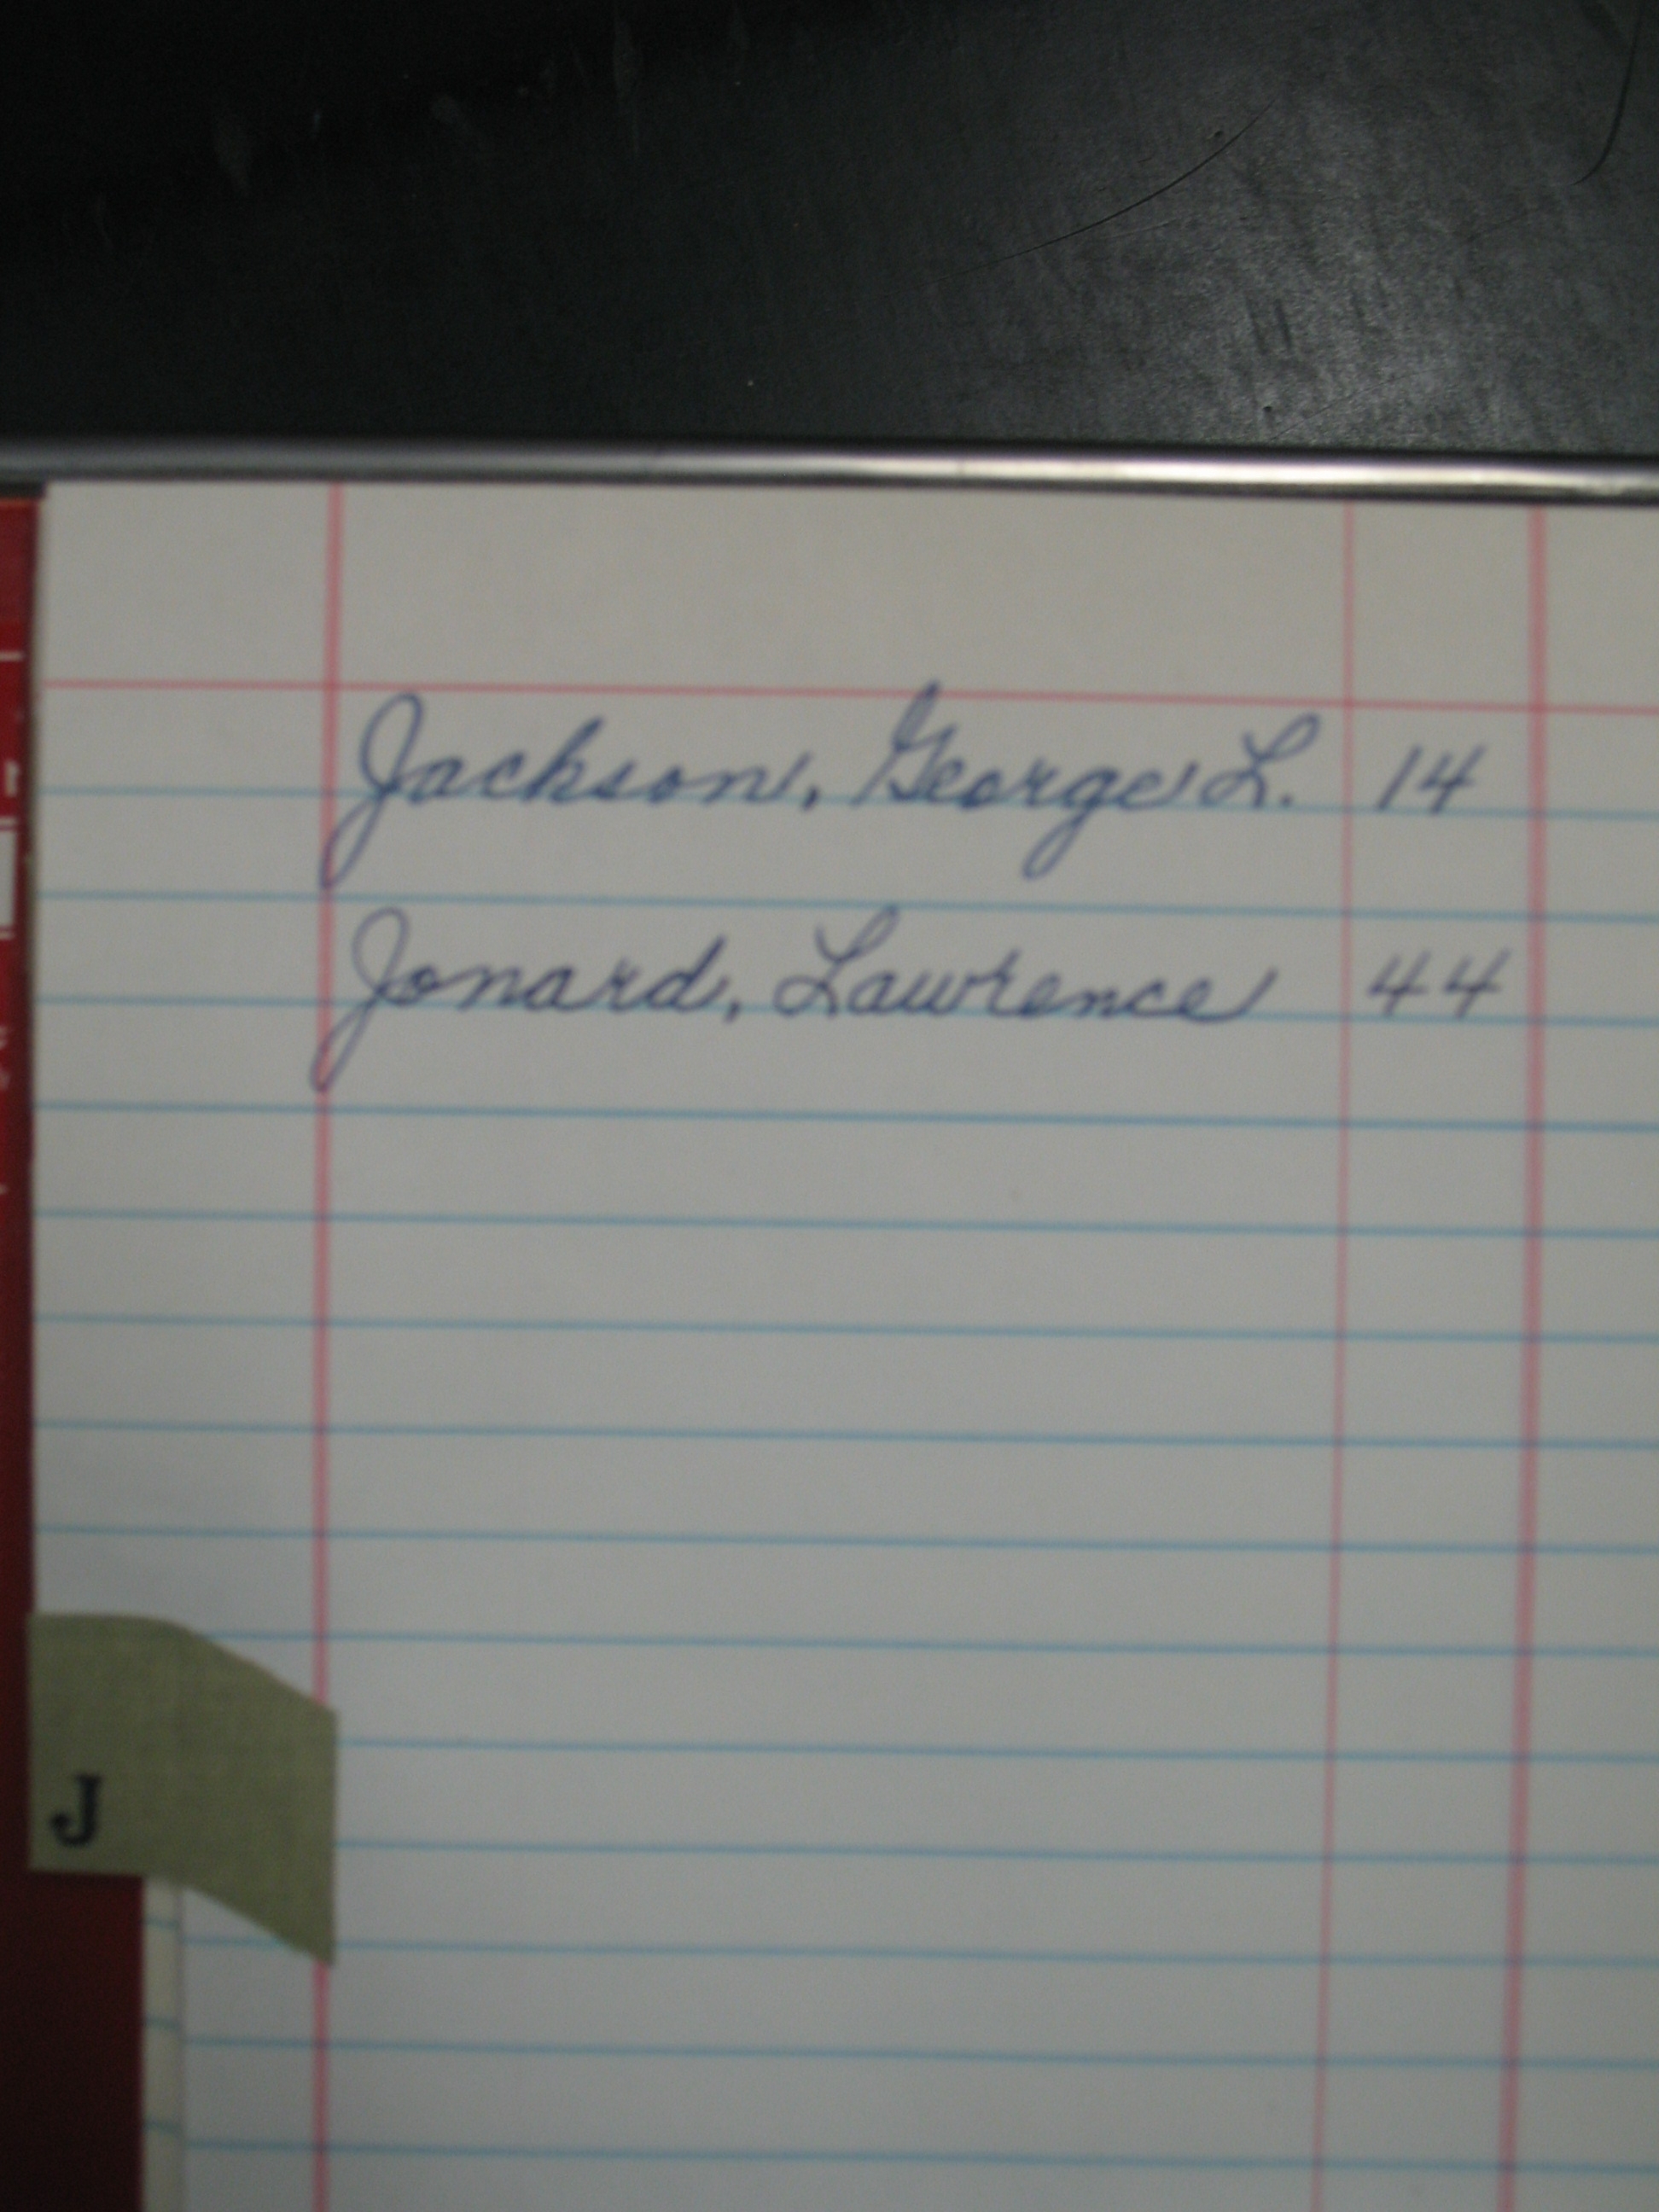 Jackson, George L. 14
Jonard, Lawrence 44
J